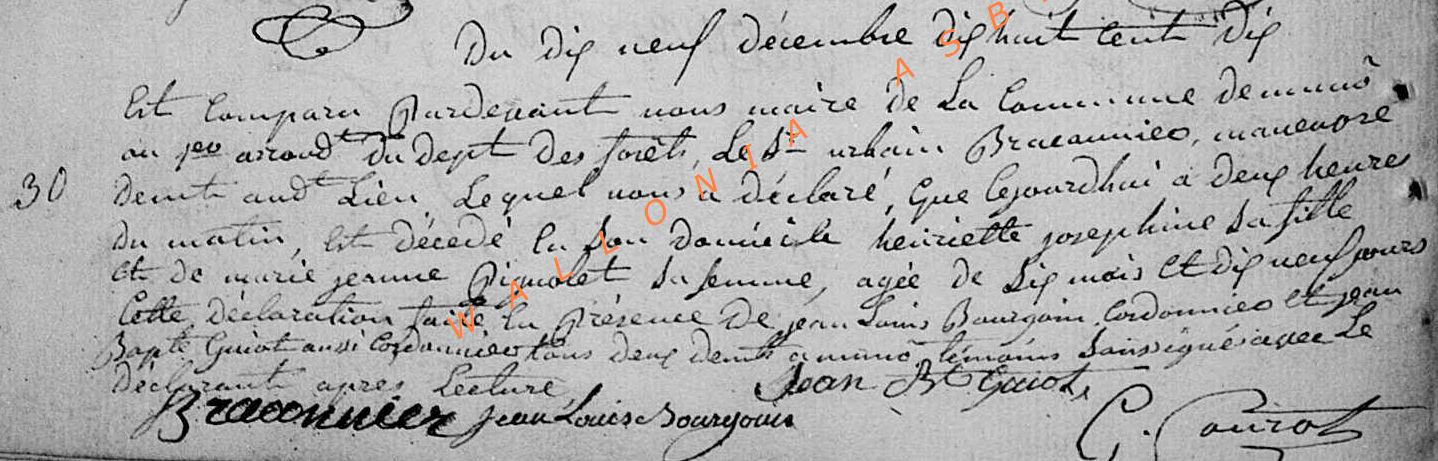 Du dix neuf décembre dix huit cent dix
Est Comparu Pardevant nous maire de La Commune demunô
au 1er arrondt Du dept des forêts, Le Sr urbain Braconnier, manoeuvre
30 demt audt Lieu Lequel nous a déclaré, que Cejourdhui a deux heures
du matin, Est décedé En Son domicile henriette josephine Sa fille
Et de marie jeanne Pignolet Sa femme, agée de Six mois Et dix neuf jours
Cette déclaration faite En Présence de jean Louis Bourgoin Cordonnier Et jean
Bapte Guiot aussi Cordonnier tous deux demts a munô témoins Soussignés avec Le
déclarant apres Lecture,
Jean Bt Guiot
Braconnier jean Louis Bourgoin
WALLONIA ASB